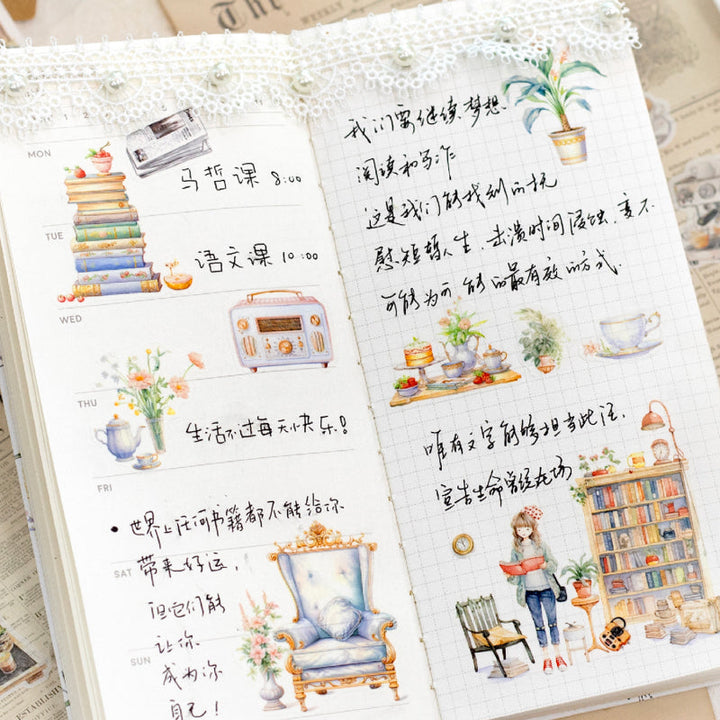 The
WEEKLY
MON
马哲课 8:00
TUE
语文课 10:00
WED
THU
生活不过每天小快乐!
FRI
• 世界上任何书籍都不能给你
SAT
带来好运,
但它们能
让你
SUN
成为你
自己!
我们要继续梦想.
阅读和写作
这是我们能找到的抚
慰短暂人生,击溃时间侵蚀,变不
可能为可能的最有效的方式.
唯有文字能够担当此任,
宣告生命曾经在场
ESTABLISH